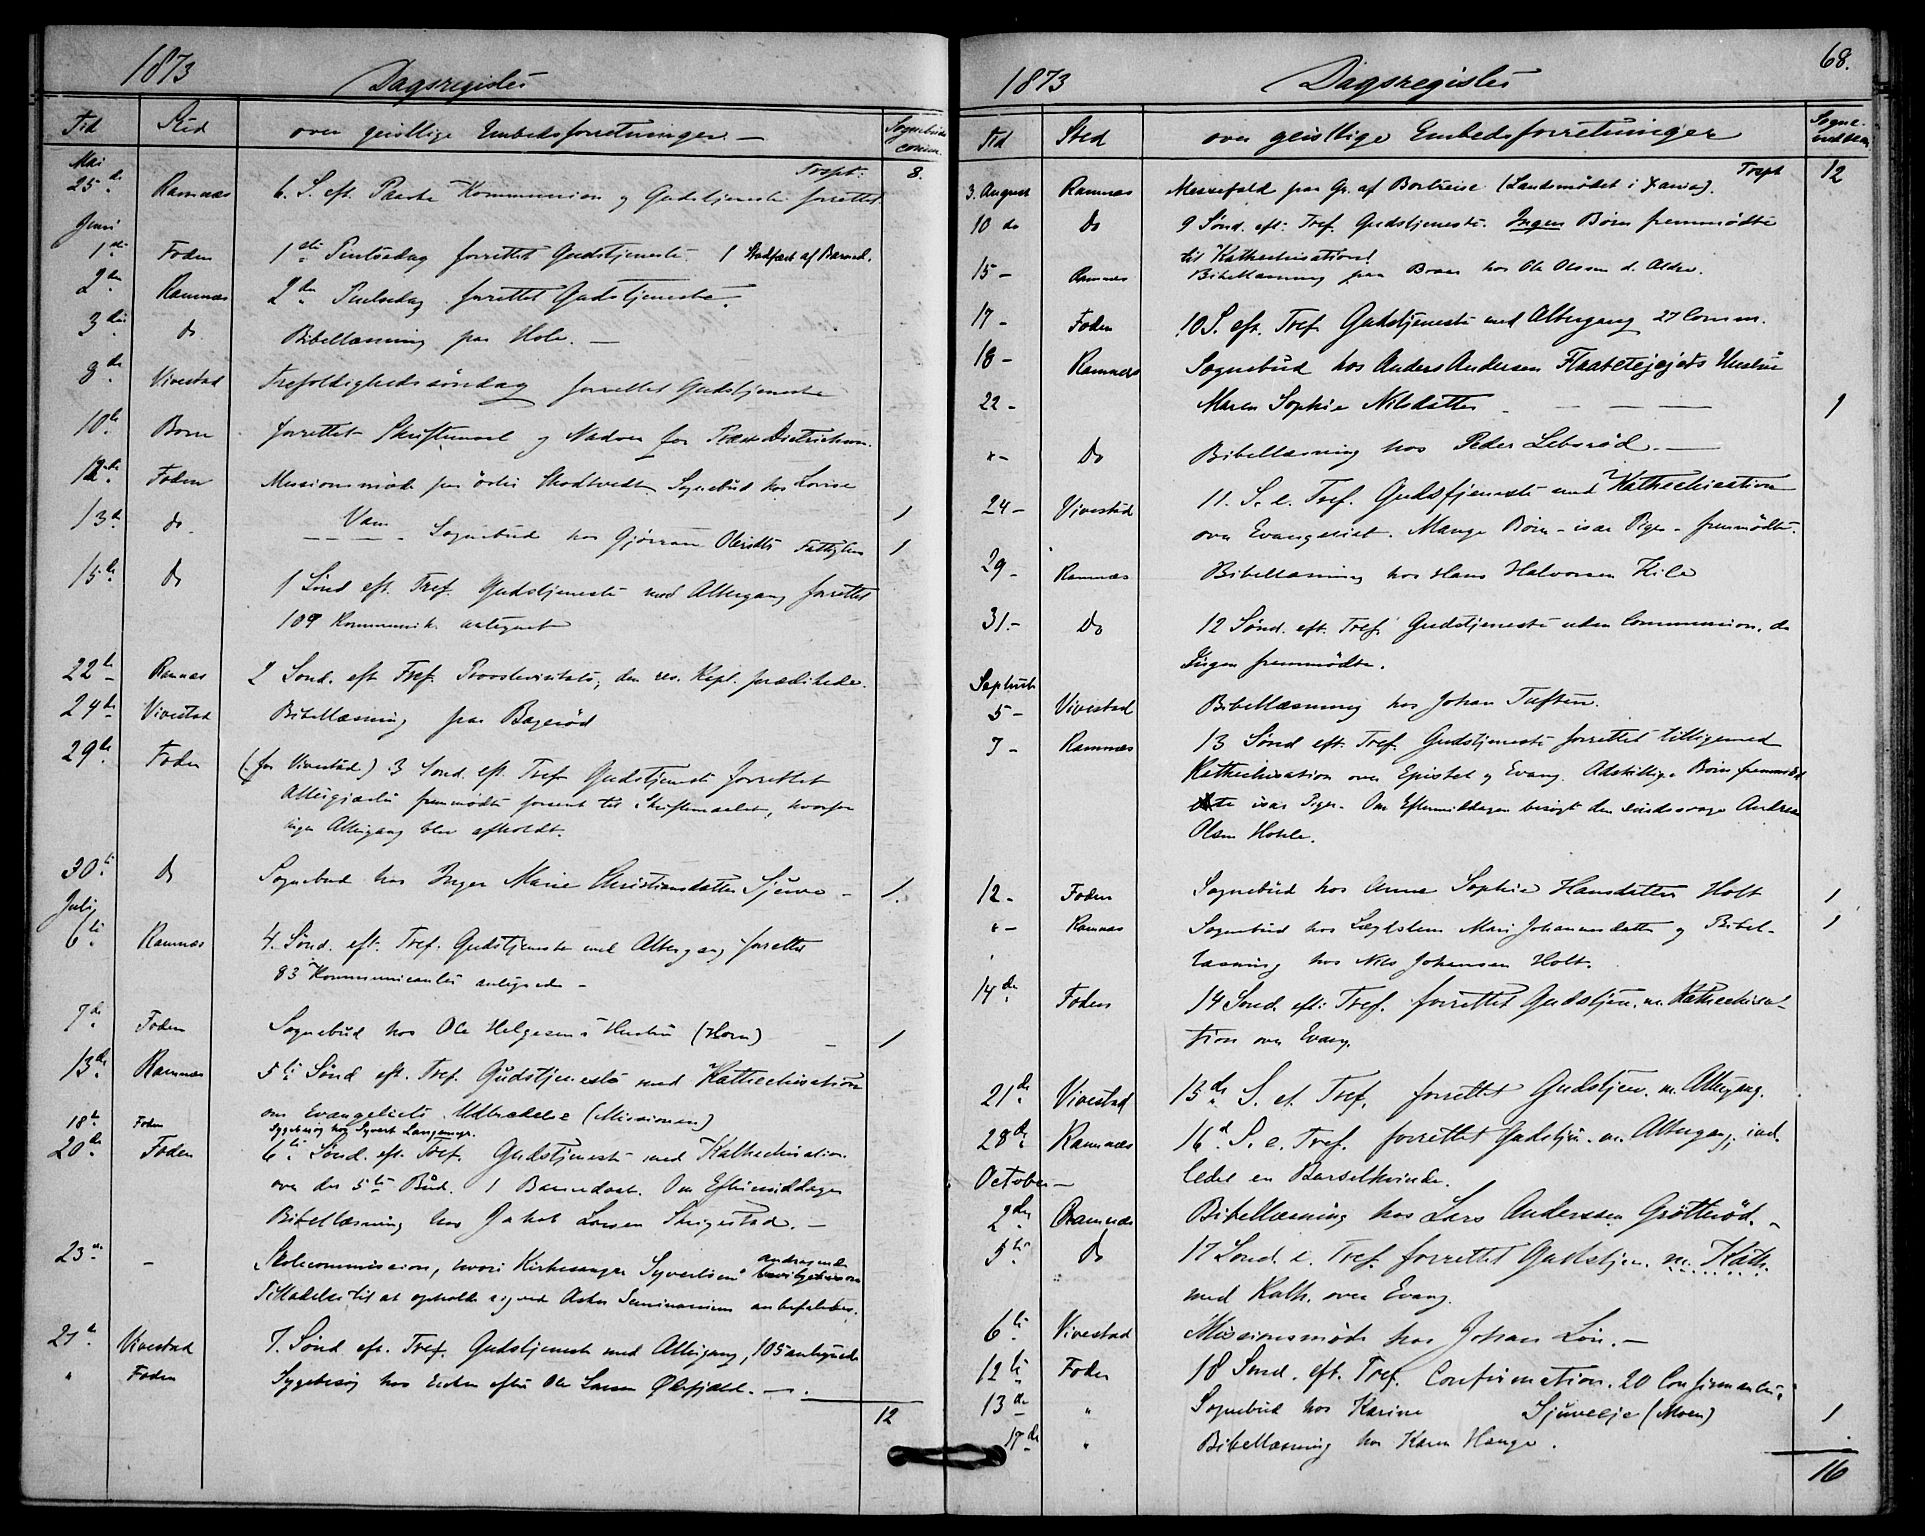 1873
Dagsregister
Tid Sted over geistlige Embedsforretninger. — Sognebud comm.
Trspt. 8.
Mai
25de Ramnæs 6. S. eft. Paaske Kommunion og Gudstjeneste forrettet
Juni
1ste Foden 1ste Pintsedag forrettet Gudstjeneste. 1 Stadfæst. af Barned.
2den Ramnæs 2den Pintsedag forrettet Gudstjeneste.
3die do Bibellæsning paa Hole. —
8de Vivestad Trefoldighedssöndag forrettet Gudstjeneste
10de forrettet Skriftemaal og Nadver for
12te Foden Missionsmöde paa östre Skodtvedt. Sognebud hos Lovise
Vam — 1
13de do. Sognebud hos Gjörran Fattiglem 1
15de do 1 Sönd eft. Tref. Gudstjeneste med Altergang forrettet
109 Kommunik. antegnet
22de Ramnæs 2 Sönd. eft. Tref. Provstevisitats; den res. Kapl. prædikede.
24de Vivestad Bibellæsning paa Bageröd
29de Foden (for Vivestad) 3 Sönd. eft. Tref Gudstjeneste forrettet
Altergjæster fremmödte forsent til Skriftemaalet, hvorfor
ingen Altergang blev afholdt.
30te do Sognebud hos Inger Marie Christiansdatter Sjuve — 1.
Juli
6te Ramnæs 4. Sönd. eft. Tref. Gudstjeneste med Altergang forrettet
83 Kommunicanter antegnede —
7de Foden Sognebud hos Ole Helgesens Hustru (Horn) — 1
13de Ramnæs 5te Sönd eft. Tref. Gudstjeneste med Kathechisation
om Evangeliets Udbredelse (Missionen)
18de Foden Sygebesög hos Syvert Langemyr.
20de Foden 6te Sönd. eft. Tref. Gudstjeneste med Kathechisation
over det 5te Bud. 1 Barnedaab. Om Eftermiddagen
Bibellæsning hos Jakob Larsen —
23de — Skolecommission, hvori Kirkesanger Syvertsens andragende
Tilladelse til at opholde sig ved Asker Seminarium anbefaledes.
27de Vivestad 7. Sönd eft. Tref. Gudstjeneste med Altergang, 105 antegnede
" Foden Sygebesög hos Enken efter Ole Larsen —
12
68.
1873
Dagsregister
Tid Sted over geistlige Embedsforretninger Sogne-
Trspt 12
3. August Ramnæs Messefald paa Gr. af Bortreise (Landsmödet i Xania).
10 do do 9 Sönd. eft. Tref. Gudstjeneste. Ingen Börn fremmödte
til Kathechisation!
15 — Ramnæs Bibellæsning paa hos Ole Olsen d. Ældre.
17 — Foden 10 S. eft. Tref Gudstjeneste med Altergang 27 Comm.
18 — Ramnæs Sognebud hos Anders Andersen Hustru
22 — Maren Sophie Nilsdatter — — — 1
" — Do Bibellæsning hos Peder Lebsröd. —
24 — Vivestad 11. S. e. Tref. Gudstjeneste med Kathechisation
over Evangeliet. Mange Börn — især Piger — fremmödte.
29 — Ramnæs Bibellæsning hos Hans Halvorsen Kile
31. — Do 12 Sönd. eft. Tref. Gudstjeneste uden Communion, da
Ingen fremmödte.
Septemb.
5 — Vivestad Bibellæsning hos Johan Tuften.
7 — Ramnæs 13 Sönd eft. Tref. Gudstjeneste forrettet tilligemed
Kathechisation over Epistel og Evang. Adskillige Börn fremmöd
te især Piger. Om Eftermiddagen besögt den sindssvage Andreas
Olsen
12 — Foden Sognebud hos Anne Sophie Hansdatter Holt 1
" — Ramnæs Sognebud hos Lægdslem Mari Johannesdatter og Bibel- 1
læsning hos Nils Johansen Holt.
14de Foden 14 Sönd. eft. Tref. forrettet Gudstjen. m. Kathechisa-
tion over Evang.
21de Vivestad 15de S. e. Tref. forrettet Gudstjen. m. Altergang.
28de Ramnæs 16de S. e. Tref. forrettet Gudstjen. m. Altergang; ind-
ledet en Barselkvinde.
October —
2den Ramnæs Bibellæsning hos Lars Anderssen Gröttröd. —
5te do 17 Sönd. e. Tref. forrettet Gudstjen. m. Kath.
med Kath. over Evang.
6te Vivestad Missionsmöde hos Johan —
12te Foden 18 Sönd. eft. Tref. Confirmation. 20 Confirmanter.
13de " Sognebud hos Karine Sjuveeje (Moen) 1
17de " Bibellæsning hos Karen Hauge.
16